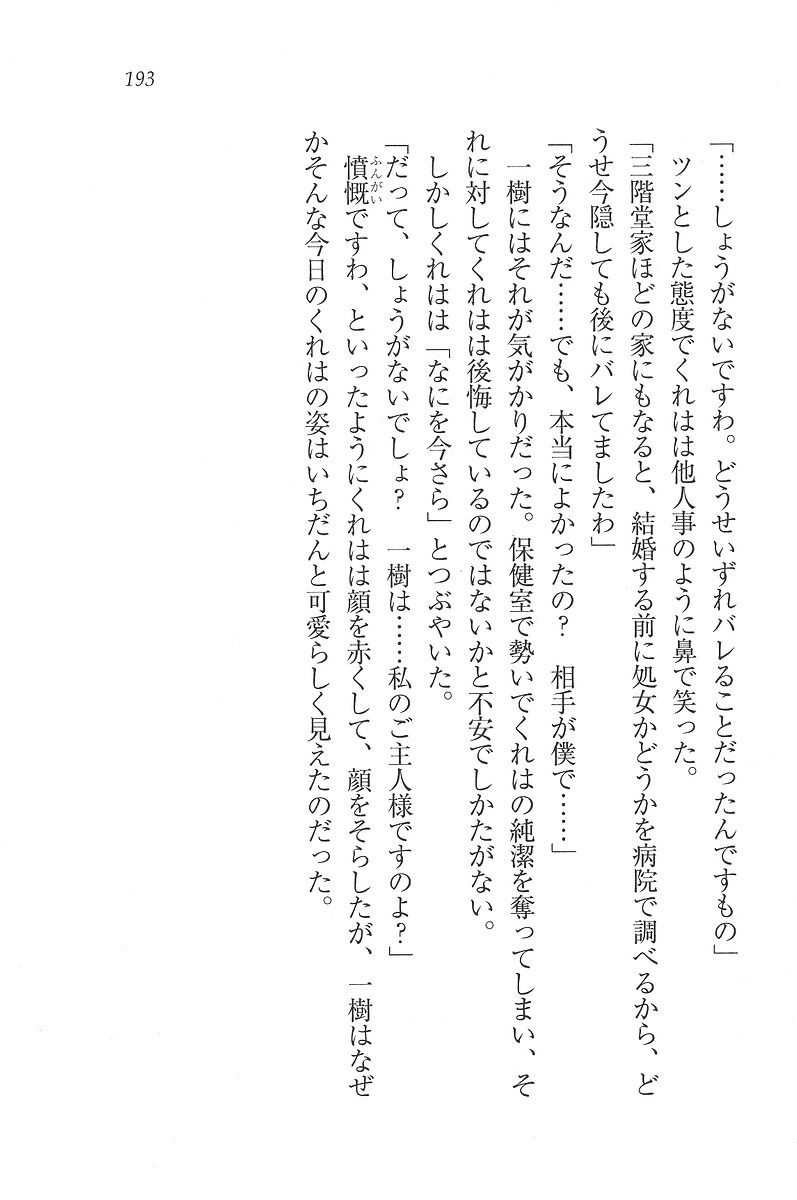 193
「……しょうがないですわ。どうせいずれバレることだったんですもの」
ツンとした態度でくれはは他人事のように鼻で笑った。
「三階堂家ほどの家にもなると、結婚する前に処女かどうかを病院で調べるから、ど
うせ今隠しても後にバレてましたわ」
「そうなんだ……でも、本当によかったの？　相手が僕で……」
一樹にはそれが気がかりだった。保健室で勢いでくれはの純潔を奪ってしまい、そ
れに対してくれはは後悔しているのではないかと不安でしかたがない。
しかしくれはは「なにを今さら」とつぶやいた。
「だって、しょうがないでしょ？　一樹は……私のご主人様ですのよ？」
憤慨ですわ、といったようにくれはは顔を赤くして、顔をそらしたが、一樹はなぜ
ふんがい
かそんな今日のくれはの姿はいちだんと可愛らしく見えたのだった。